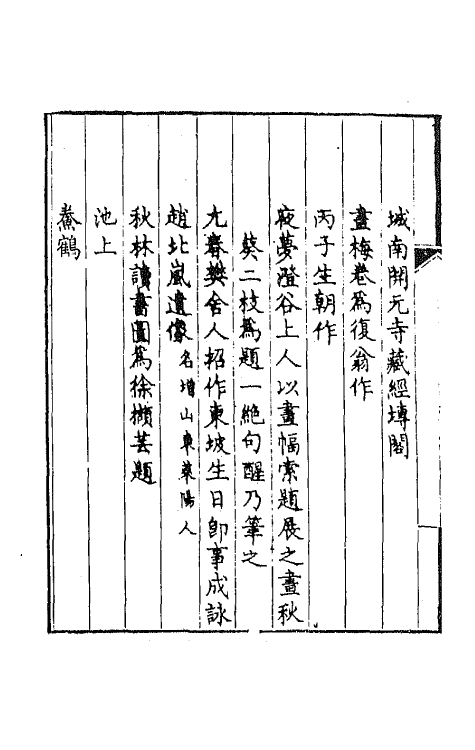 城南開元寺藏經塼閣
畫梅卷爲復翁作
丙子生朝作
夜夢澄谷上人以畫幅索題展之畫秋
葵二枝爲題一絶句醒乃筆之
尤春樊舍人招作東坡生日即事成詠
趙北嵐遺像名增山東萊陽人
秋林讀書圖爲徐嬾芸題
池上
養鶴